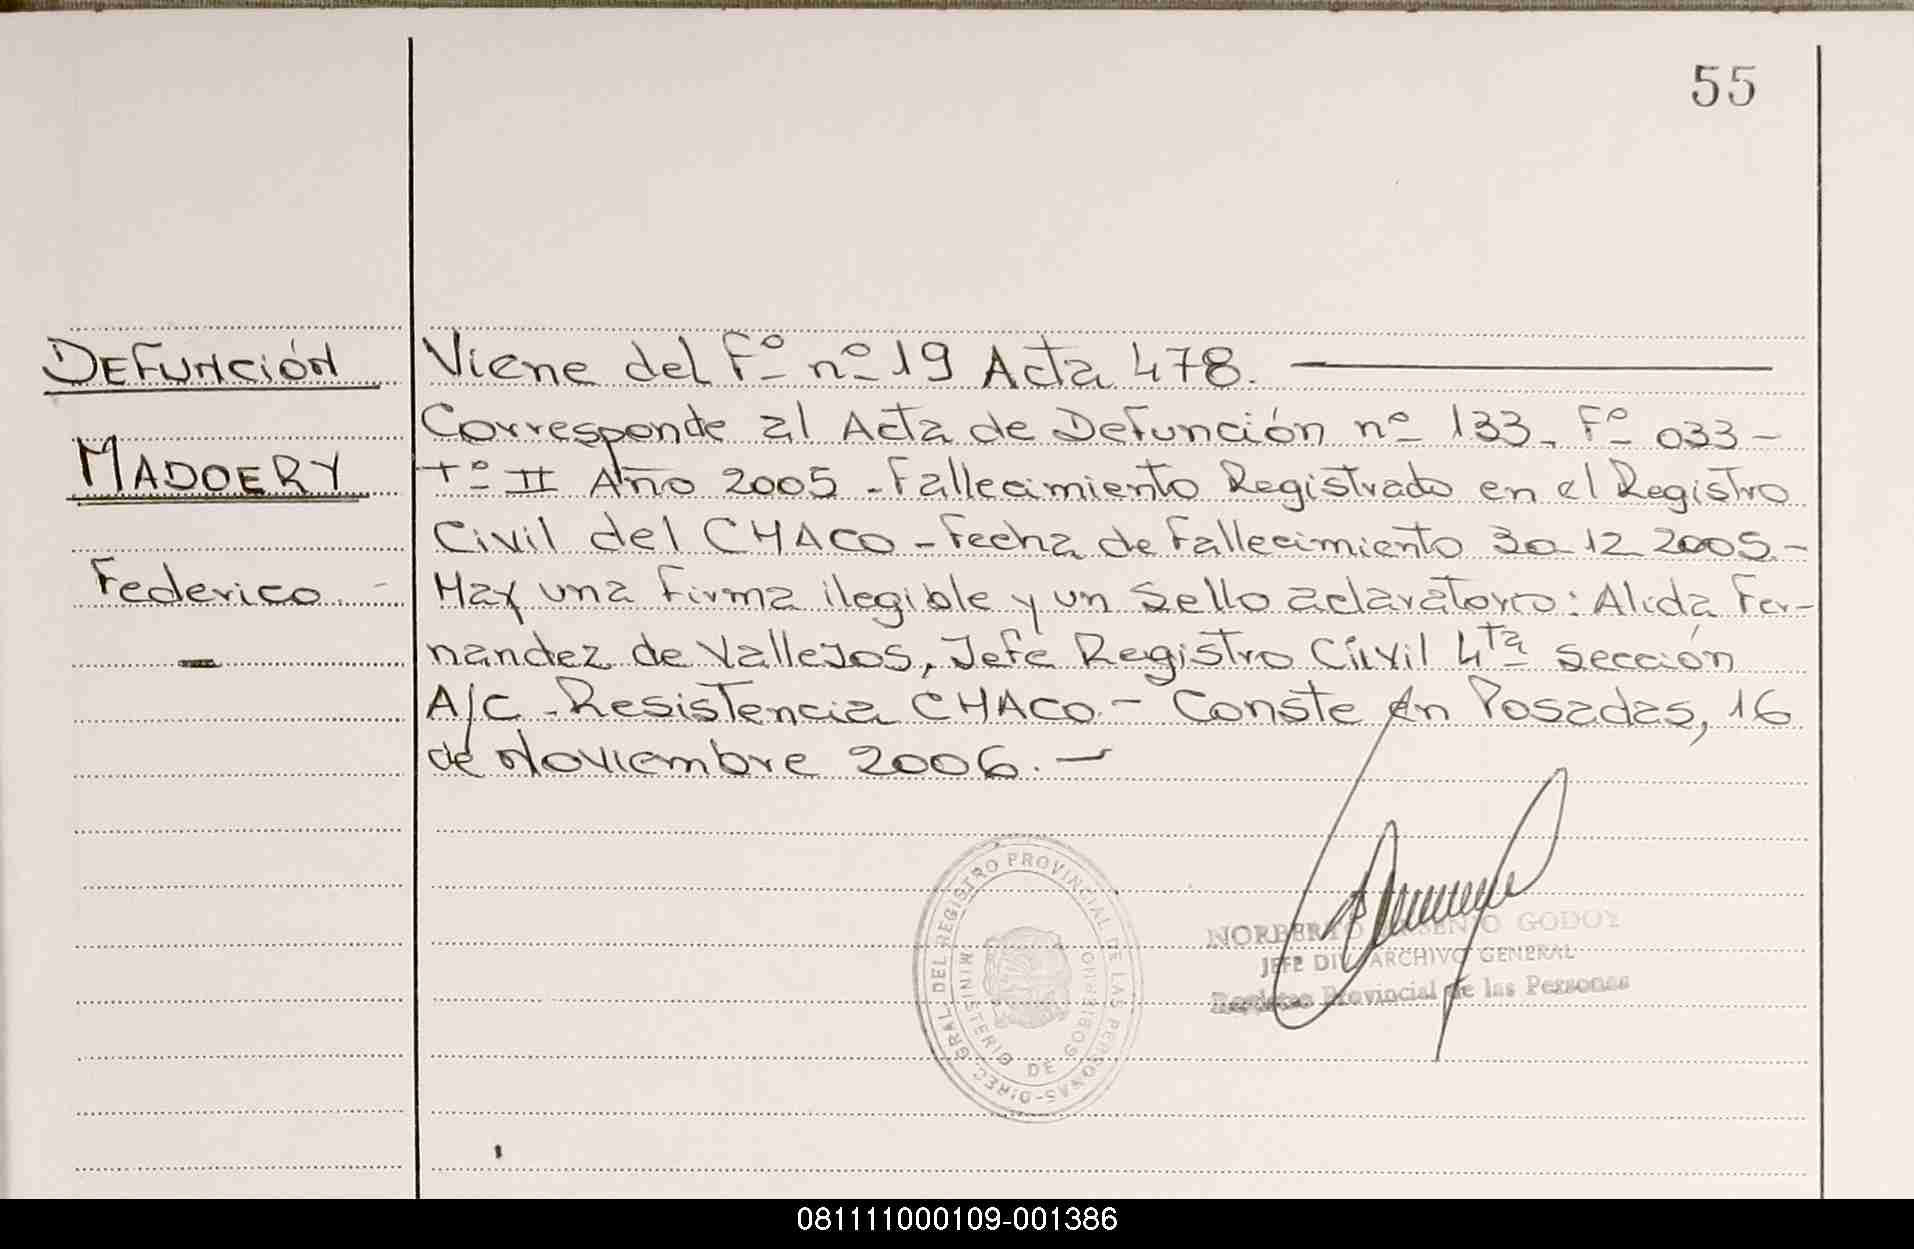 55
DEFUNCIÓN
MADOERY
Federico
Viene del Fº nº 19 Acta 478.
Corresponde al Acta de Defunción nº 133. Fº 033-
Tº II Año 2005 - Fallecimiento Registrado en el Registro
Civil del CHACO - Fecha de Fallecimiento 30-12 2005.-
Hay una Firma ilegible y un Sello aclaratorio: Alida Fer-
nandez de Vallejos, Jefe Registro Civil 4ta sección
A/C - Resistencia CHACO.- Conste en Posadas, 16
de Noviembre 2006.-
DIREC. GRAL DEL REGISTRO PROVINCIAL DE LAS PERSONAS-
MINISTERIO DE GOBIERNO
NORBERTO GODOY
JEFE DIV. ARCHIVO GENERAL
Registro Provincial de las Personas
081111000109-001386